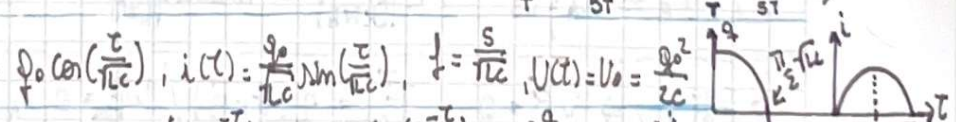 q₀ cos(t/√LC), i(t) = q₀/√LC sin(t/√LC), f = S/√LC, U(t) = U₀ = q₀²/2C
q
π/2 √LC
i
t